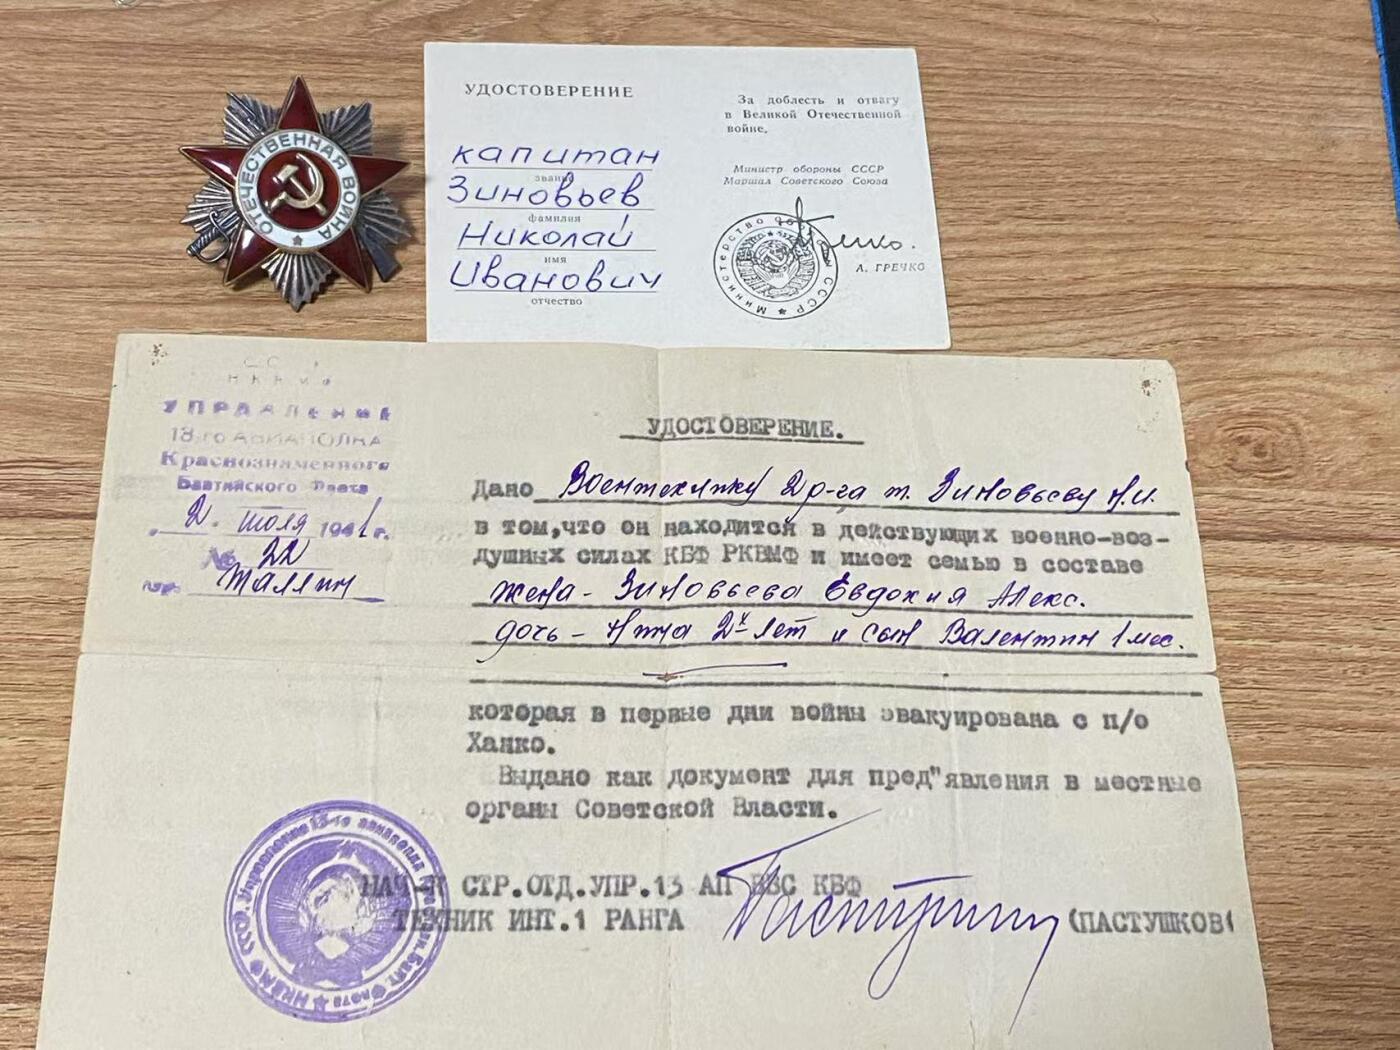 ОТЕЧЕСТВЕННАЯ ВОЙНА
УДОСТОВЕРЕНИЕ
капитан
звание
Зиновьев
фамилия
Николай
имя
Иванович
отчество
За доблесть и отвагу
в Великой Отечественной
войне.
Министр обороны СССР
Маршал Советского Союза
Министерство обороны СССР
А. ГРЕЧКО
УПРАВЛЕНИЕ
АВИАПОЛКА
Краснознаменного
Балтийского Флота
"2" июля 1941 г.
№ 22
Таллин
УДОСТОВЕРЕНИЕ.
Дано Воентехнику 2 р-га т. Зиновьеву Н.И.
в том,что он находится в действующих военно-воз-
душных силах КБФ РКВМФ и имеет семью в составе
жена - Зиновьева Евдокия Алекс.
дочь - 2х лет и сын Валентин 1 мес.
которая в первые дни войны эвакуирована с п/о
Ханко.
Выдано как документ для пред"явления в местные
органы Советской Власти.
НАЧ-К СТР.ОТД.УПР.13 АП ВВС КБФ
ТЕХНИК ИНТ.1 РАНГА (ПАСТУШКОВ(
НКВМФ СССР. Управление 13-го авиаполка